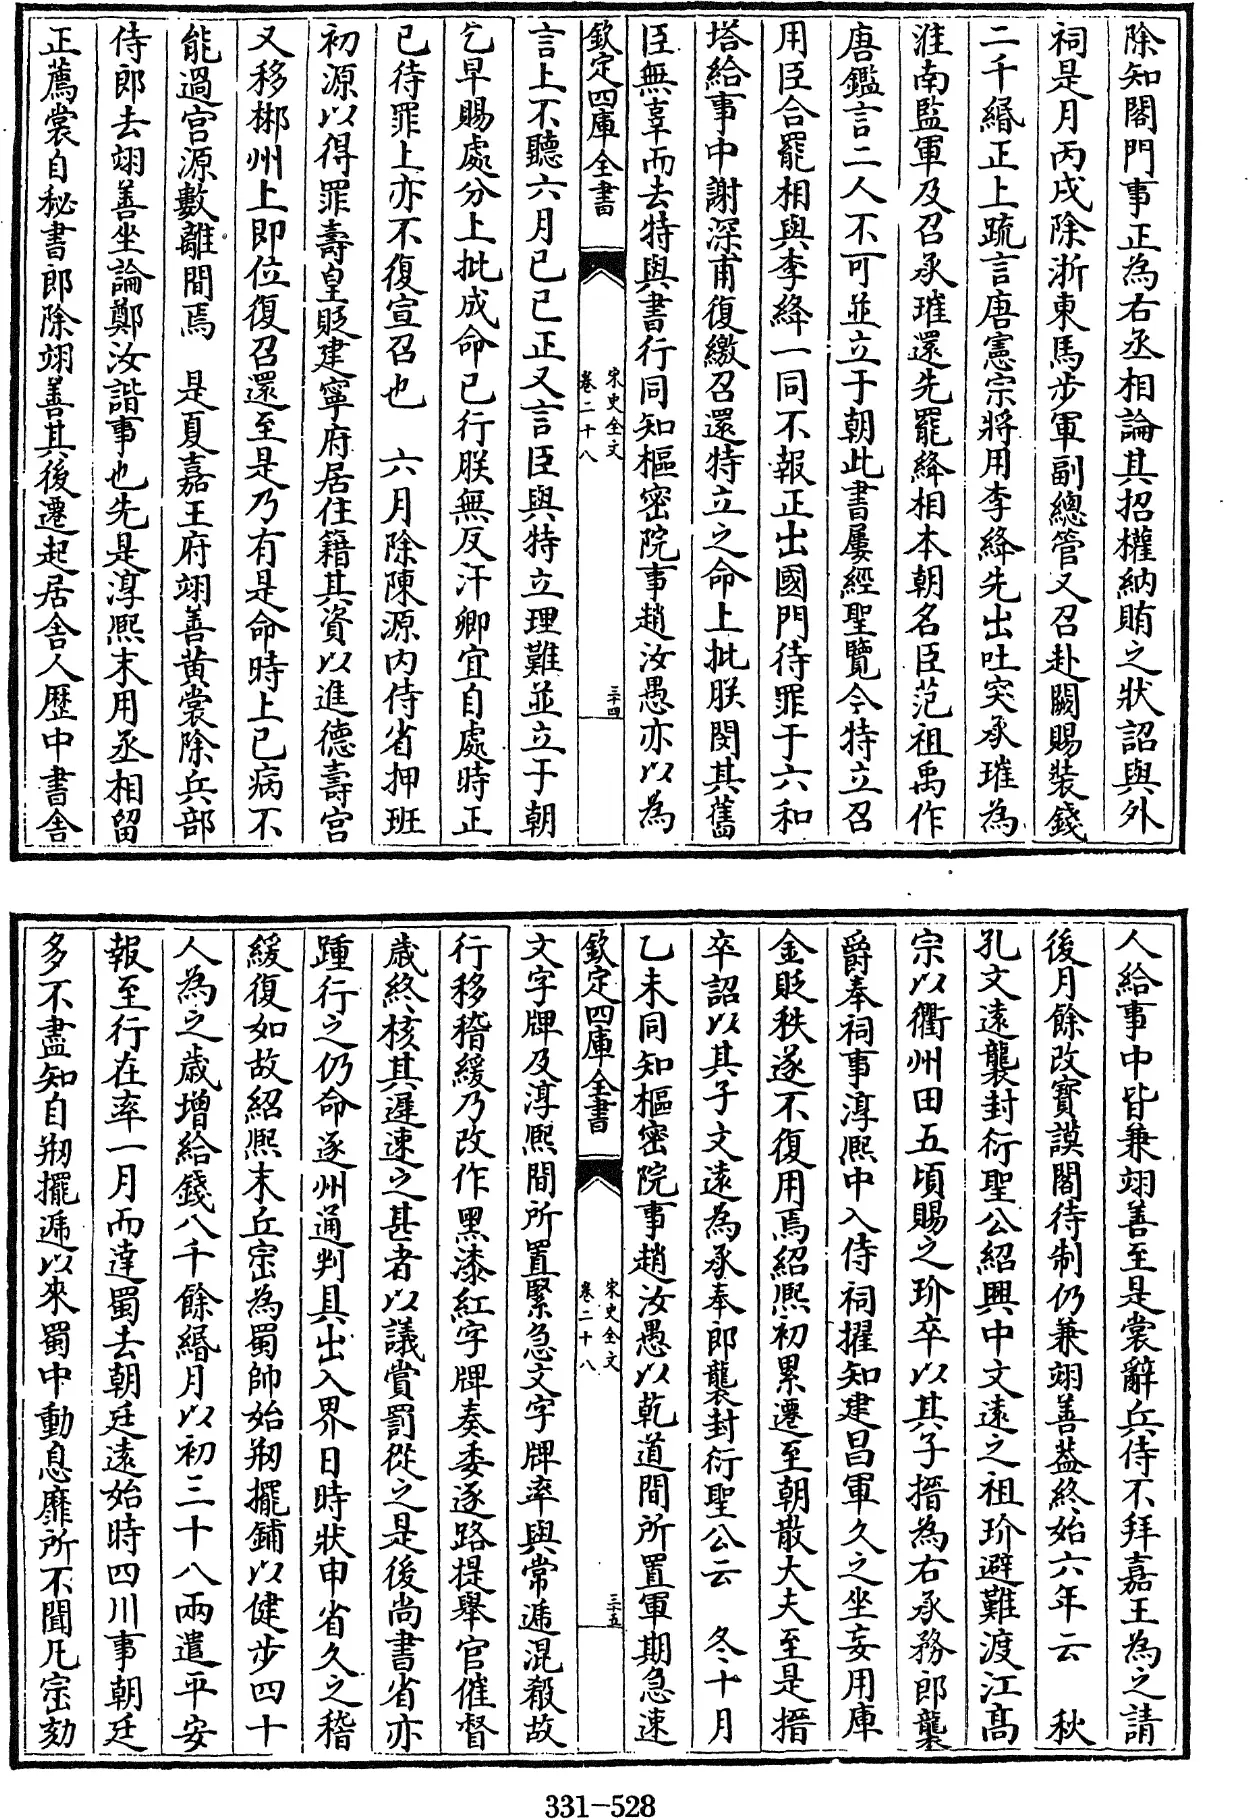 除知閤門事正為右丞相論其招權納賄之狀詔與外
祠是月丙戌除浙東馬步軍副總管又召赴闕賜裝錢
二千緡正上疏言唐憲宗將用李絳先出吐突承璀為
淮南監軍及召承璀還先罷絳相本朝名臣范祖禹作
唐鑑言二人不可並立于朝此書屢經聖覽今特立召
用臣合罷相與李絳一同不報正出國門待罪于六和
塔給事中謝深甫復繳召還特立之命上批朕閔其舊
臣無辜而去特與書行同知樞密院事趙汝愚亦以為
欽定四庫全書
宋史全文
卷二十八
三十四
言上不聽六月己巳正又言臣與特立理難並立于朝
乞早賜處分上批成命已行朕無反汗卿宜自處時正
已待罪上亦不復宣召也 六月除陳源内侍省押班
初源以得罪壽皇貶建寧府居住籍其資以進德壽宮
又移郴州上即位復召還至是乃有是命時上已病不
能過宮源數離間焉 是夏嘉王府翊善黄裳除兵部
侍郎去翊善坐論鄭汝諧事也先是淳熙末用丞相留
正薦裳自秘書郎除翊善其後遷起居舍人歷中書舍
人給事中皆兼翊善至是裳辭兵侍不拜嘉王為之請
後月餘改寳謨閣待制仍兼翊善葢終始六年云 秋
孔文遠襲封衍聖公紹興中文遠之祖玠避難渡江髙
宗以衢州田五頃賜之玠卒以其子搢為右承務郎襲
爵奉祠事淳熙中入侍祠擢知建昌軍久之坐妄用庫
金貶秩遂不復用焉紹熙初累遷至朝散大夫至是搢
卒詔以其子文遠為承奉郎襲封衍聖公云 冬十月
乙未同知樞密院事趙汝愚以乾道間所置軍期急速
欽定四庫全書
宋史全文
卷二十八
三十五
文字牌及淳熙間所置緊急文字牌率與常遞混殽故
行移稽緩乃改作黒漆紅字牌奏委逐路提舉官催督
歲終核其遲速之甚者以議賞罰從之是後尚書省亦
踵行之仍命逐州通判具出入界日時狀申省久之稽
緩復如故紹熙末丘崈為蜀帥始剙擺鋪以健步四十
人為之歲增給錢八千餘緡月以初三十八兩遣平安
報至行在率一月而達蜀去朝廷遠始時四川事朝廷
多不盡知自剙擺遞以來蜀中動息靡所不聞凡崈劾
331-528